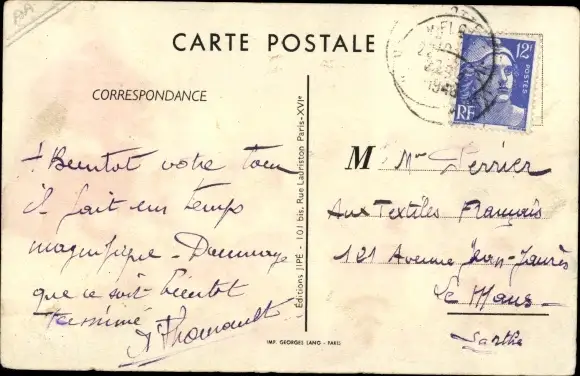 AA
CARTE POSTALE
CORRESPONDANCE
! Bientot votre tour
il fait un temps
magnifique - Dommage
que ce soit bientot
terminé
Thomault
Editions JIPÉ - 101 bis, Rue Lauriston Paris-XVIe
12F
POSTES
RF
1948
M Mr Perrier
Aux Textiles Français
121 Avenue Jean-Jaurès
Le Mans -
Sarthe
IMP. GEORGES LANG - PARIS